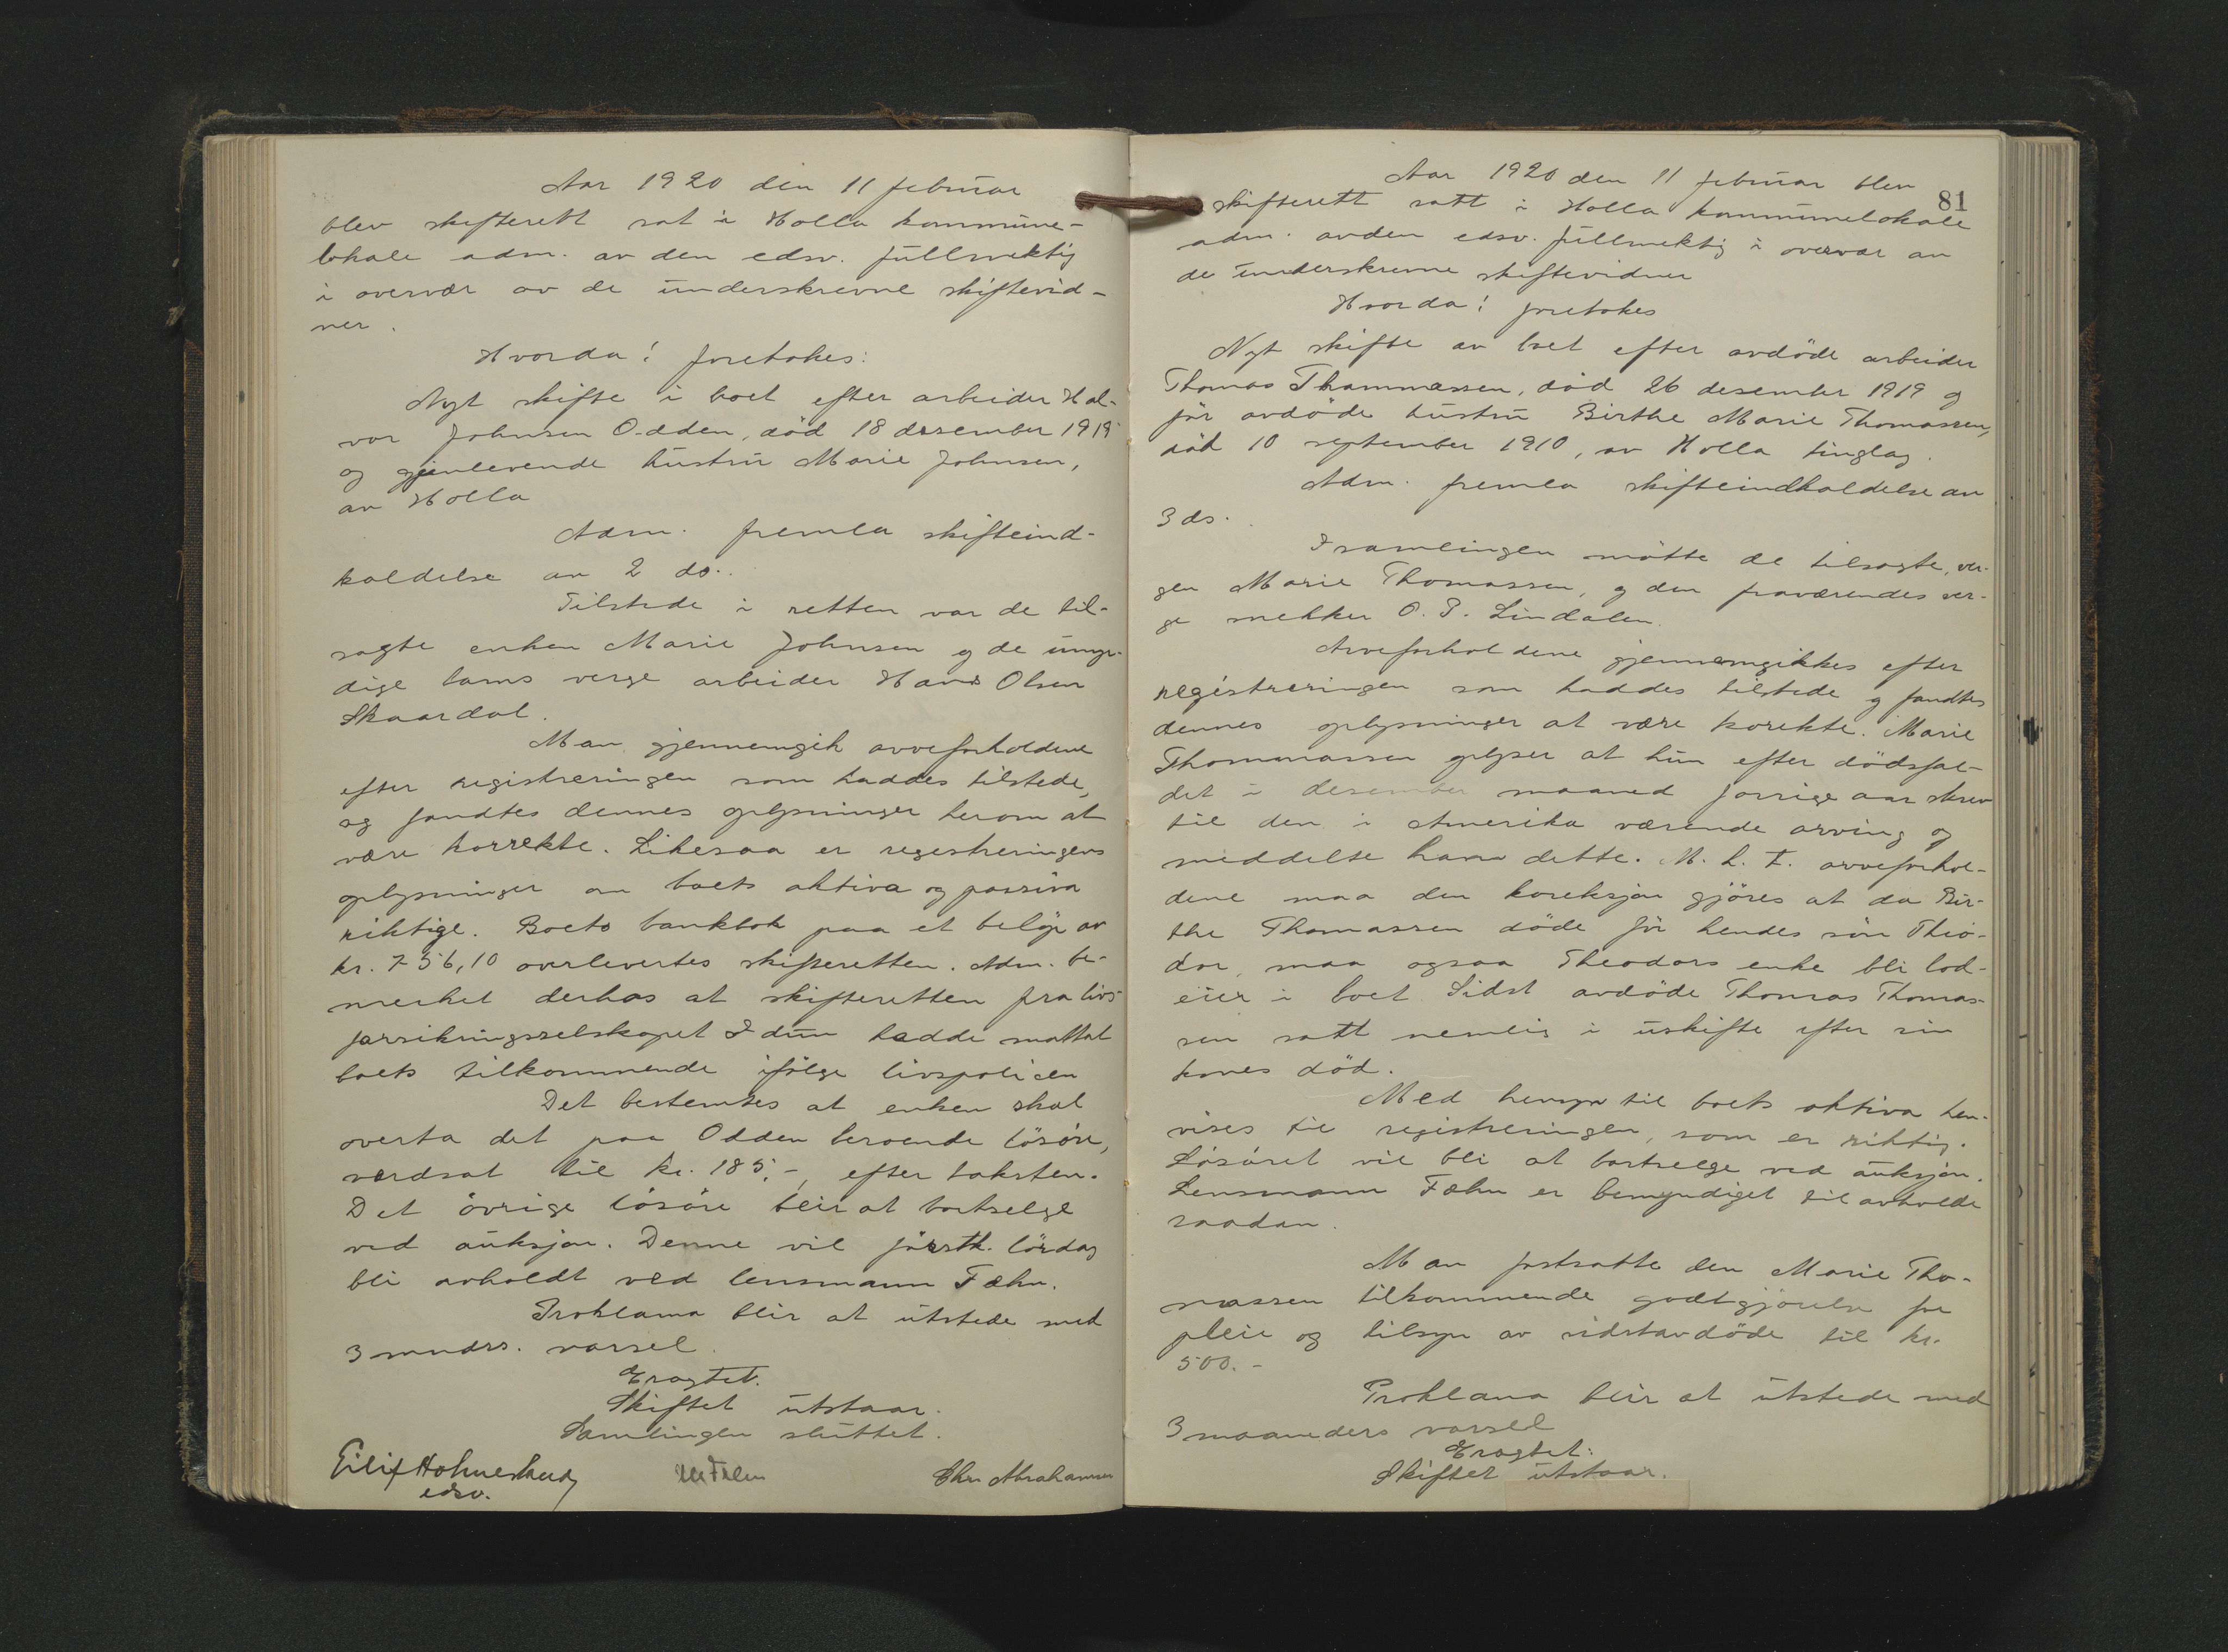 Aar 1920 den 11 februar
blev skifterett sat i Holla kommune-
lokale adm. av den edsv. fullmektig
i overvær av de underskrevne skiftevid-
ner.
Hvorda! foretokes:
Nyt skifte i boet efter arbeider Hal-
vor Johnsen Odden, död 18 desember 1919
og gjenlevende hustru Marie Johnsen,
av Holla
Adm. fremla skifteind-
kaldelse av 2 ds..
Tilstede i retten var de til-
sagte enken Marie Johnsen og de umyn-
dige barns verge arbeider Hans Olsen
Skaardal.
Man gjennemgik arveforholdene
efter registreringen som haddes tilstede,
og fandtes dennes oplysninger herom at
være korrekte. Likesaa er regestreringens
oplysninger om boets aktiva og passiva
riktige. Boets bankbok paa et belöp av
kr. 756,10 overlevertes skifteretten. Adm. be-
merket derhos at skifteretten fra livs-
forsikringsselskapet Idun hadde mottat
boets tilkommende ifölge livspolicen
Det bestemtes at enken skal
overta det paa Odden beroende lösöre,
verdsat til kr. 185,- efter taksten.
Det övrige lösöre blir at bortselge
ved auksjon. Denne vil förstk. lördag
bli avholdt ved lensmann Fæhn.
Proklama blir at utstede med
3 mndrs. varsel.
Eragtet.
Skiftet utstaar.
Samlingen sluttet.
Eilif Holmeskud
edsv.
Chr Abrahamsen
81
Aar 1920 den 11 februar blev
skifterett satt i Holla kommunelokale
adm. av den edsv. fullmektig i overvær av
de underskrevne skiftevidner
Hvorda! foretokes
Nyt skifte av boet efter avdöde arbeider
Thomas Thommassen, död 26 desember 1919 og
för avdöde hustru Birthe Marie Thomassen,
död 10 september 1910, av Holla tinglag.
Adm. fremla skifteindkaldelse av
3 ds.
I samlingen mötte de tilsagte, ver-
gen Marie Thomassen, og den fraværendes ver-
ge snekker O. P. Lindalen.
Arveforholdene gjennemgikkes efter
registreringen som haddes tilstede og fandtes
dennes oplysninger at være korekte. Marie
Thommassen oplyser at hun efter dödsfal-
det i desember maaned forrige aar skrev
til den i Amerika værende arving og
meddelte ham dette. M. h. t. arveforhol-
dene maa den koreksjon gjöres at da Bir-
the Thomassen döde för hendes sön Theo-
dor, maa ogsaa Theodors enke bli lod-
eier i boet. Sidst avdöde Thomas Thomas-
sen satt nemlig i uskifte efter sin
kones död.
Med hensyn til boets aktiva hen-
vises til registreringen, som er riktig.
Lösöret vil bli at bortselge ved auksjon.
Lensmann Fæhn er bemyndiget til avholde
saadan.
Man fastsatte den Marie Tho-
massen tilkommende godtgjörelse for
pleie og tilsyn av sidstavdöde til kr.
500.-
Proklama blir at utstede med
3 maaneders varsel
Eragtet:
Skiftet utstaar.